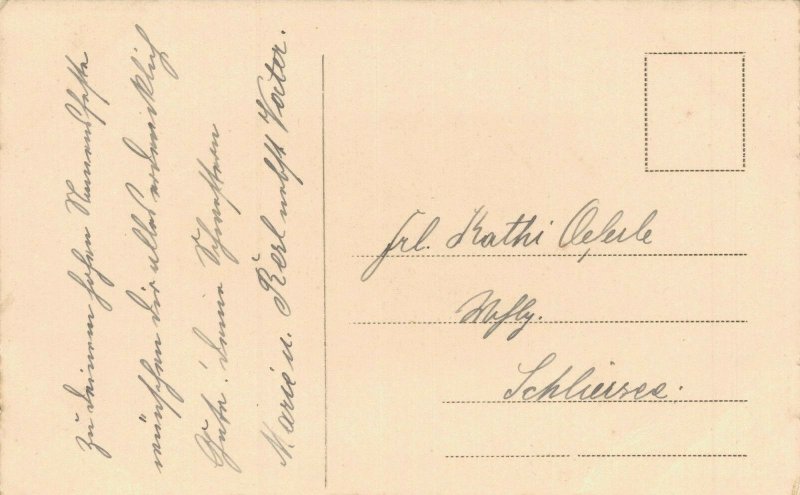 Zu deinem hohen Namensfeste
wünschen dir alles erdenklich
Gute. deine Schwestern
Marie u. Resl nebst Vater.
Frl. Kathi Oeferle
Schliersee.